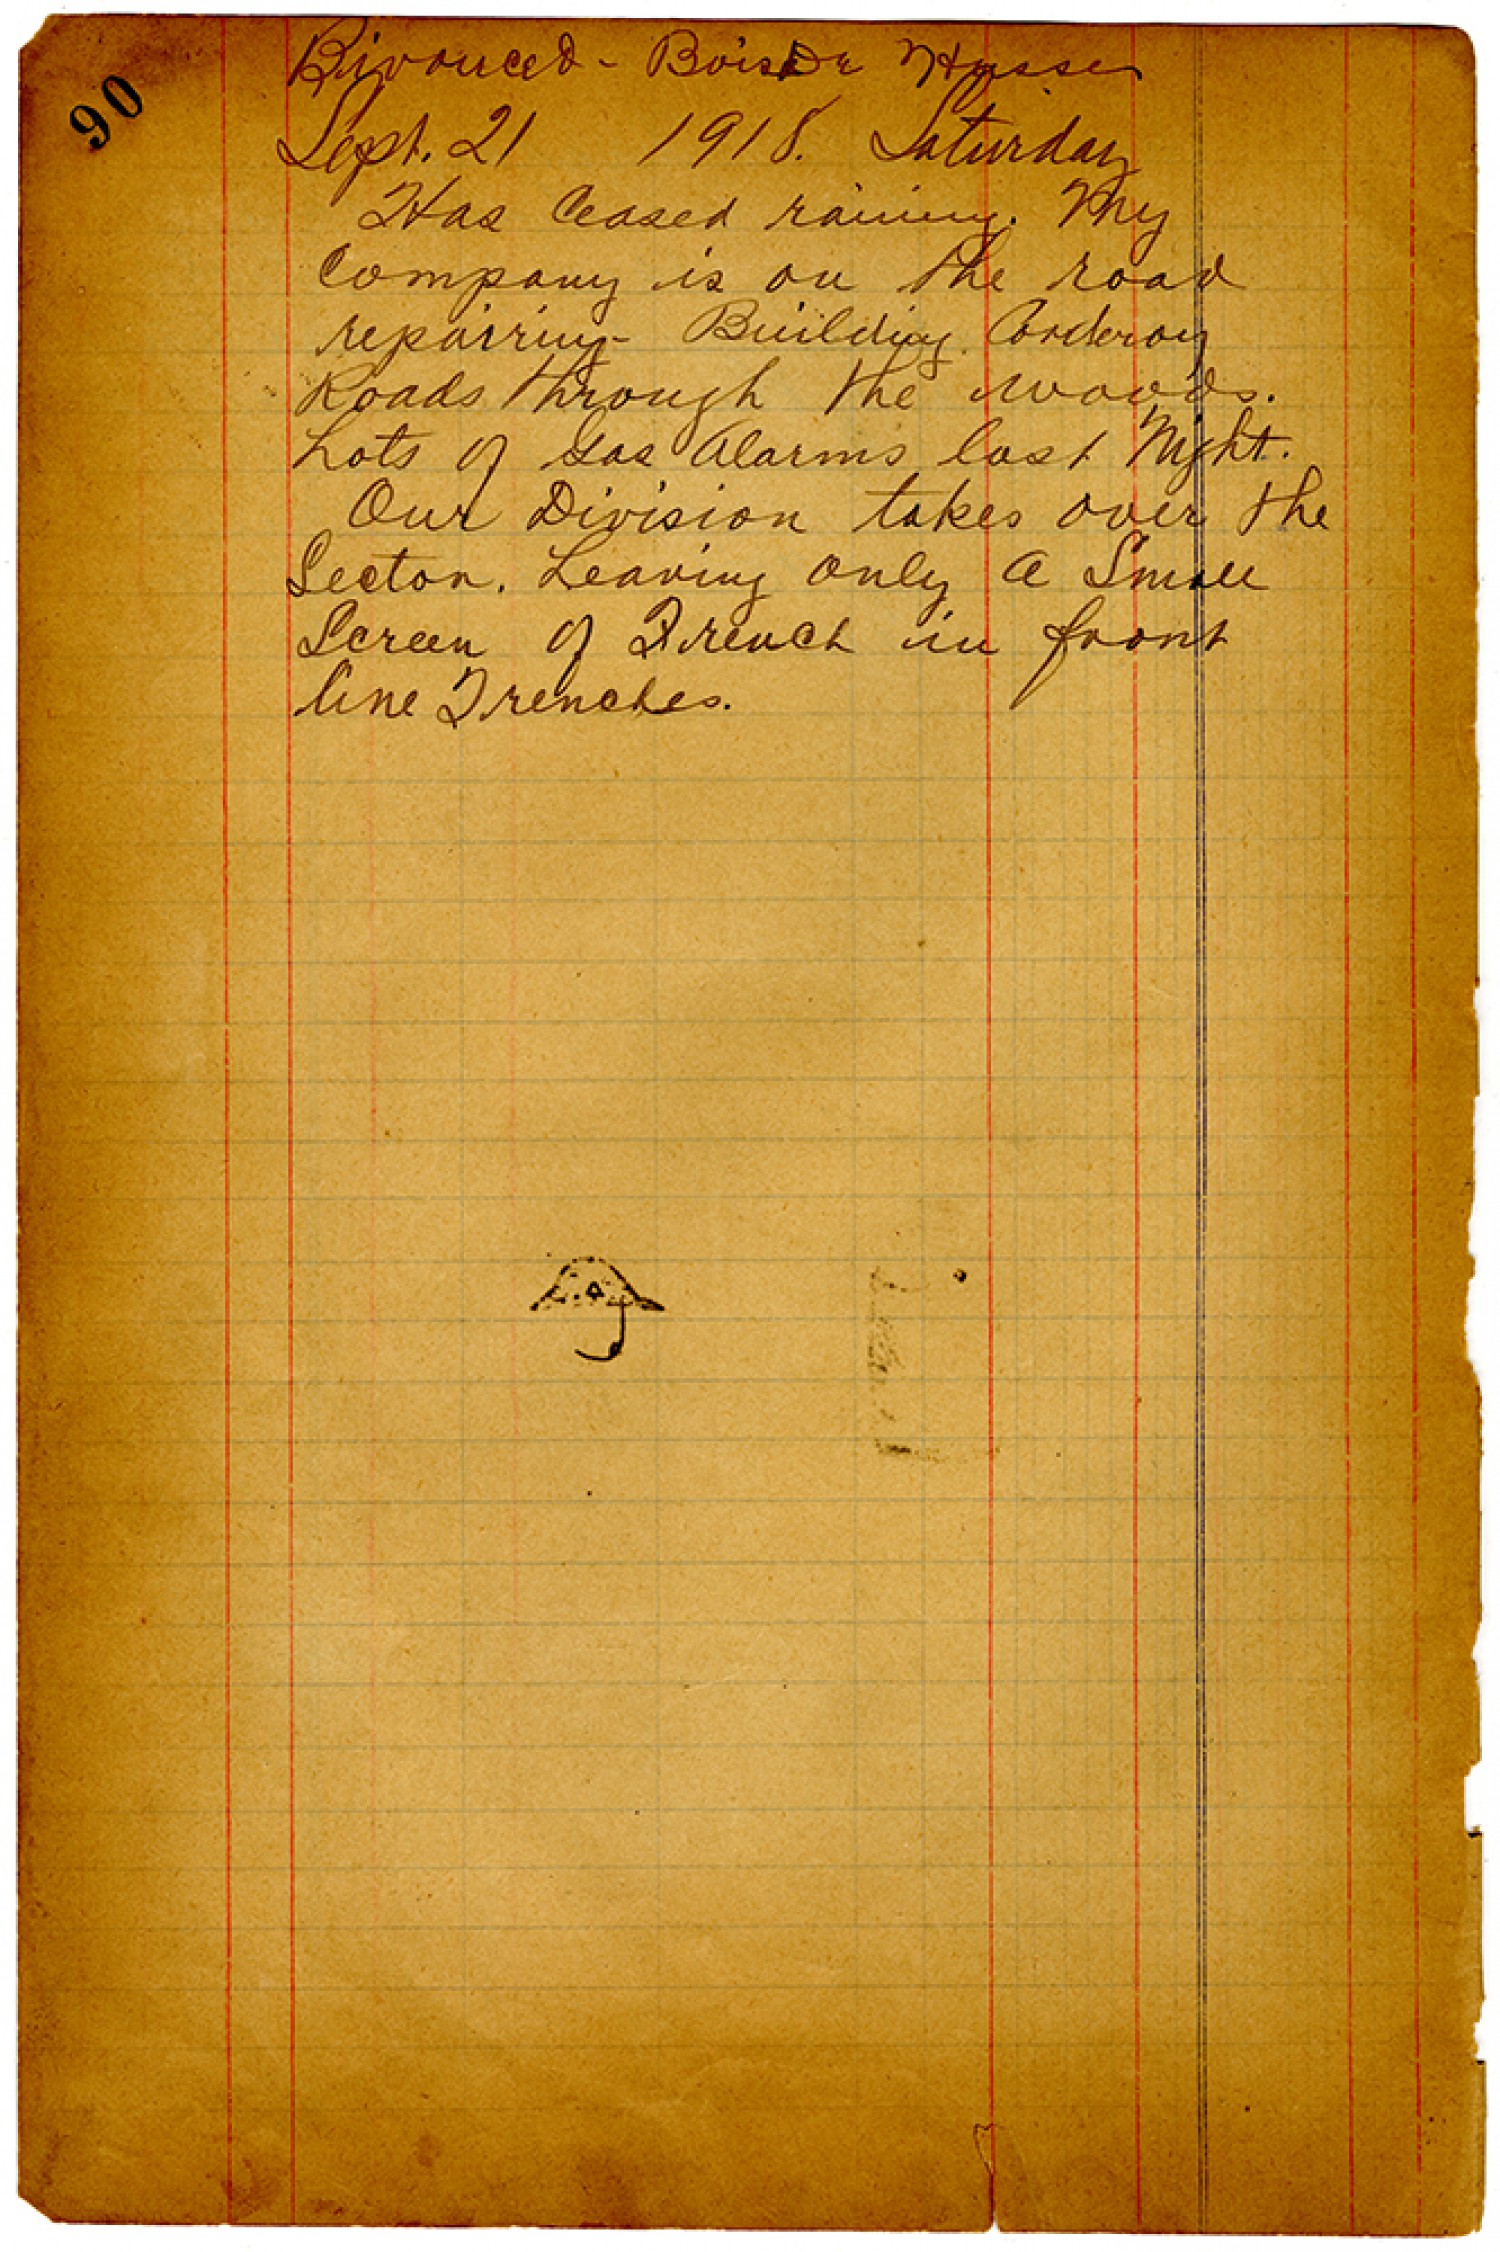 90
Bivouced - Bois De Hesse
Sept. 21 1918. Saturday
Has Ceased raining. My
Company is on the road
repairing - Building Corderoy
Roads through the woods.
Lots of Gas Alarms last Night.
Our Division takes over the
Sector. Leaving only a Small
Screen of French in front
line Trenches.